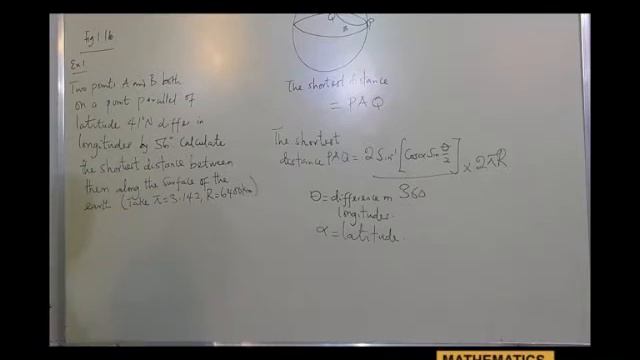 Fig 1.16
Ex 1
Two points A and B both
on a point parallel of
latitude 41°N differ in
longitudes by 56° Calculate
the shortest distance between
them along the surface of the
earth (Take π=3.142, R=6400km)
Q
P
B
The shortest distance
= PAQ
The shortest
distance PAQ = 2 Sin⁻¹ [Cosα Sin θ/2] × 2πR
360
θ = difference in
longitudes.
α = latitude.
MATHEMATICS